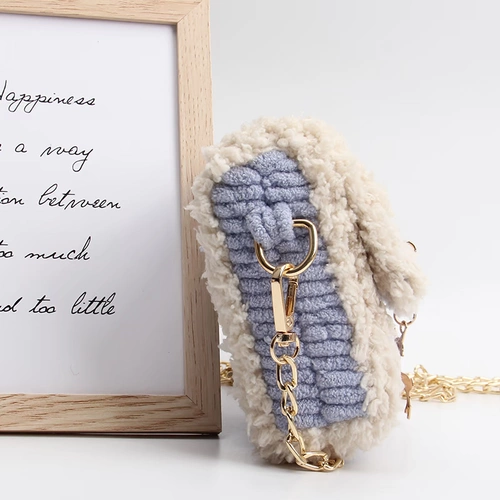 Happiness
a way
tion between
oo much
d too little